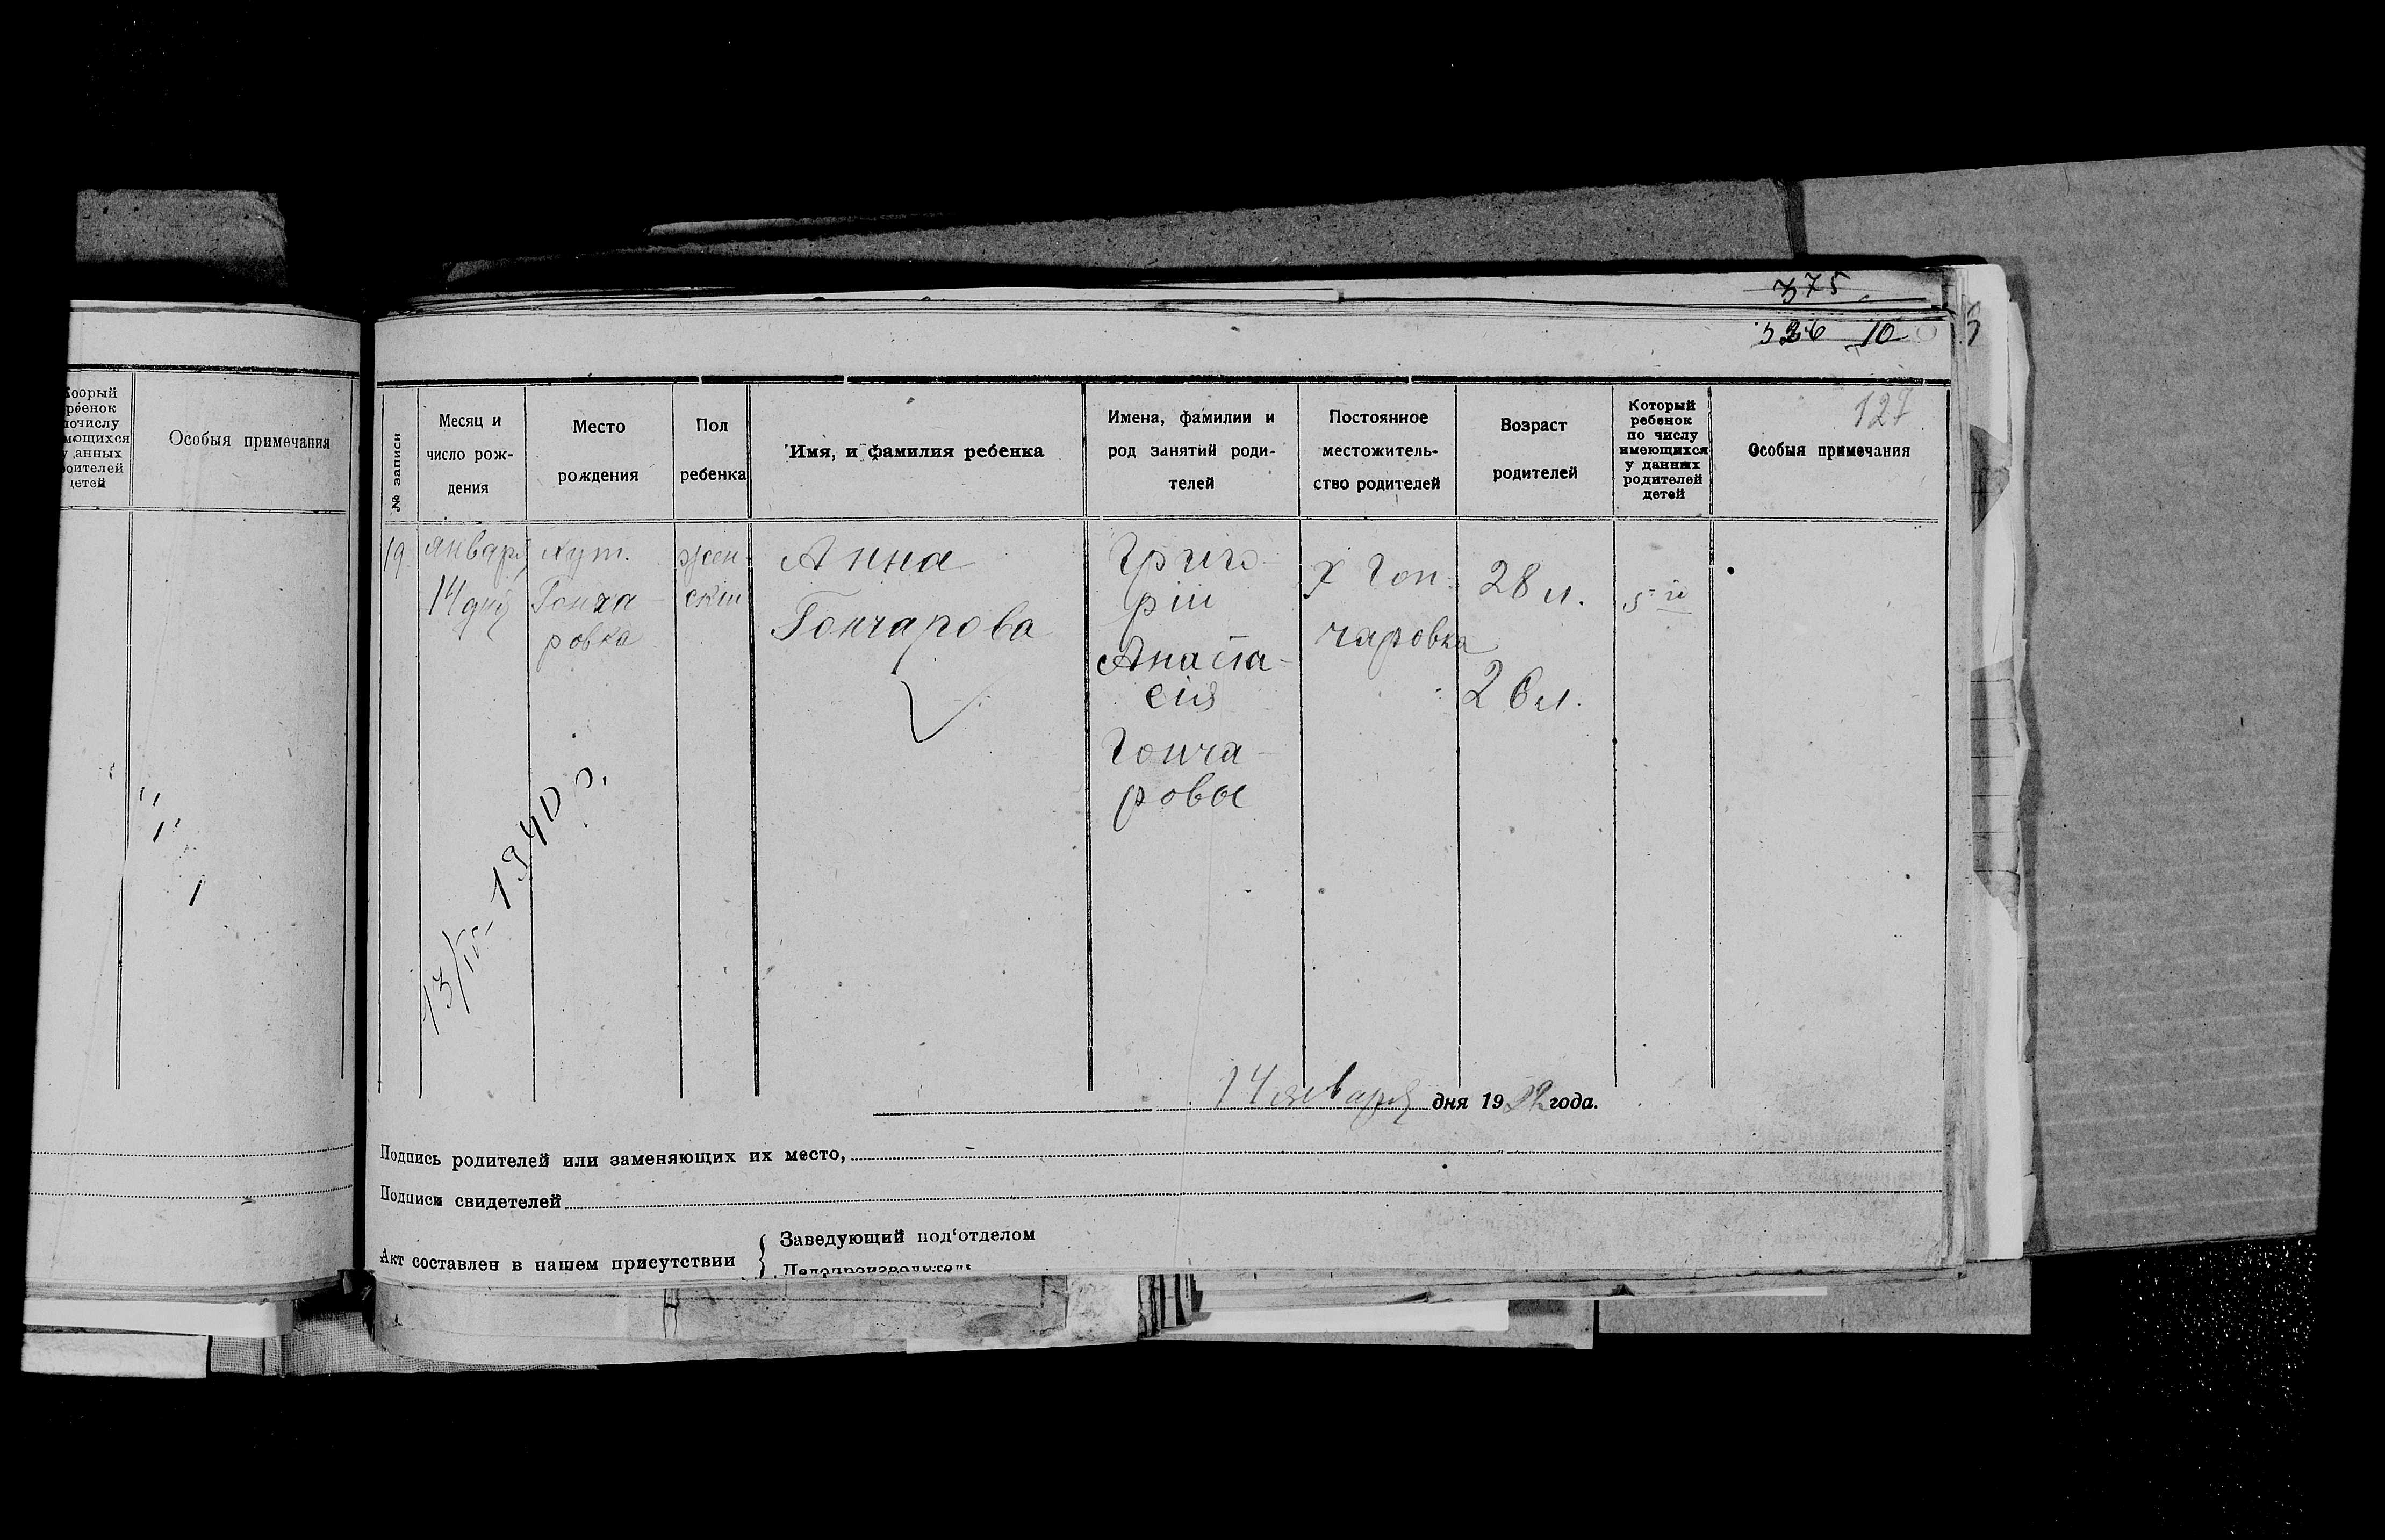 375
326 10
127
Особыя примечания
№ записи
Месяц и
число рож-
дения
Место
рождения
Пол
ребенка
Имя, и фамилия ребенка
Имена, фамилии и
род занятий роди-
телей
Постоянное
местожитель-
ство родителей
Возраст
родителей
Который
ребенок
по числу
имеющихся
у данных
родителей
детей
Особыя примечания
19
января
14 дня
хут.
Гонча-
ровка
жен-
скiй
Анна
Гончарова
Григо-
рiй
Анаста-
сiя
Гонча-
ровы
х Гон-
чаровка
28 л.
26 л.
5-й
13/IV-1940 г.
14 января дня 1922 года.
Подпись родителей или заменяющих их место,
Подписи свидетелей
Акт составлен в нашем присутствии
Заведующий под‘отделом
Делопроизводитель